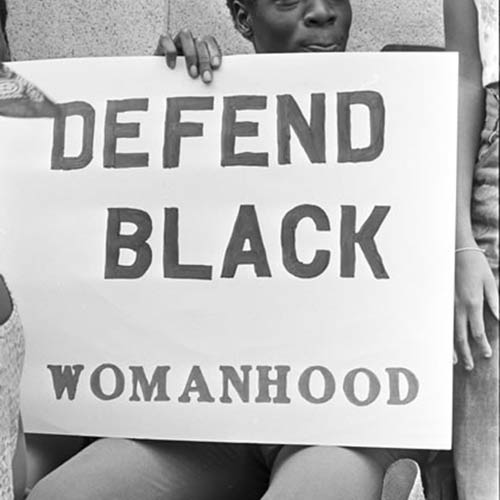 DEFEND
BLACK
WOMANHOOD